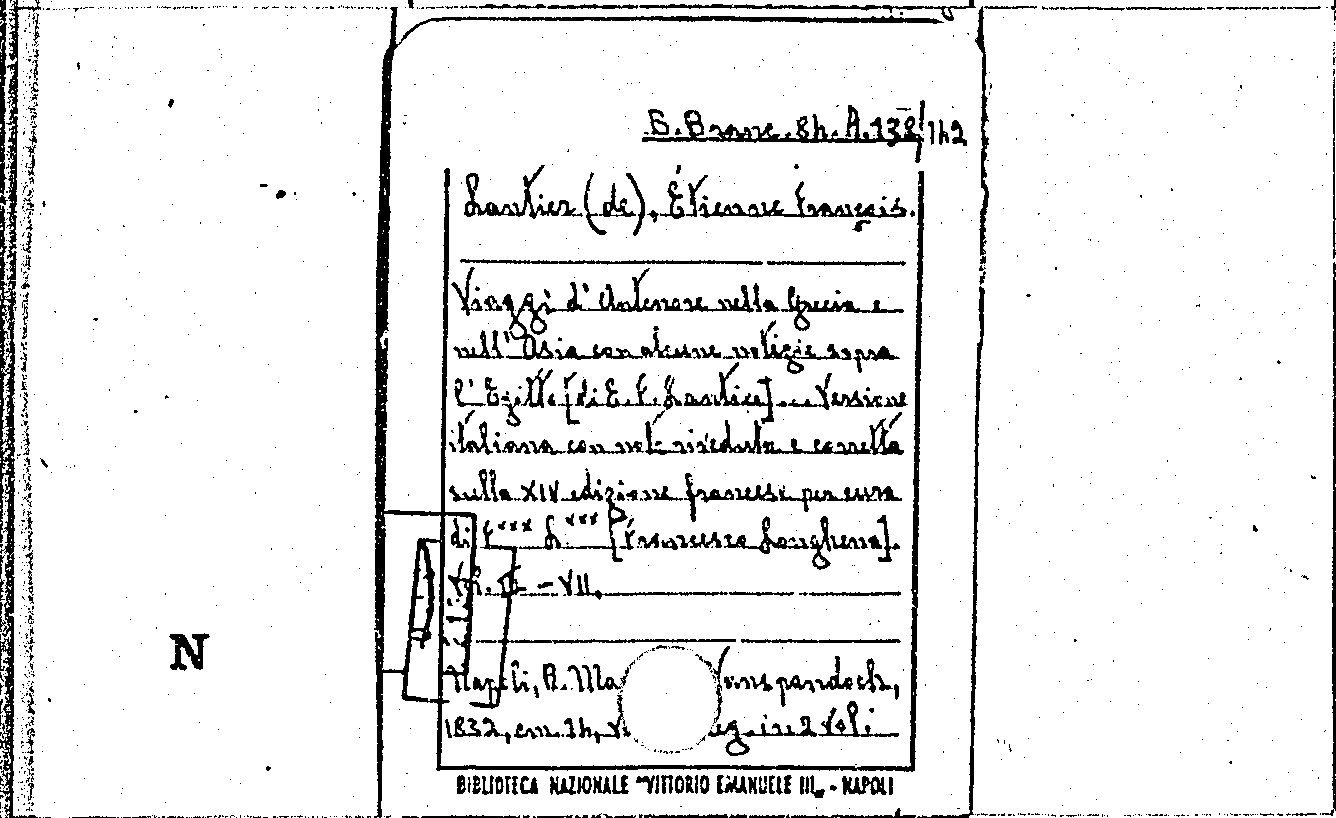 B. Branc. 8h. A. 138/142
Lantier (de), Étienne François.
Viaggi d'Antenore nella Grecia e
nell'Asia con alcune notizie sopra
l'Egitto [di E. F. Lantier]... Versione
italiana con note riveduta e corretta
sulla XIV edizione francese per cura
di F*** L*** [Francesco Longhena].
- VII.
Napoli, R. Ma
1832, cm. 14, v. eg. in 2 vol.
N
BIBLIOTECA NAZIONALE "VITTORIO EMANUELE III„ - NAPOLI